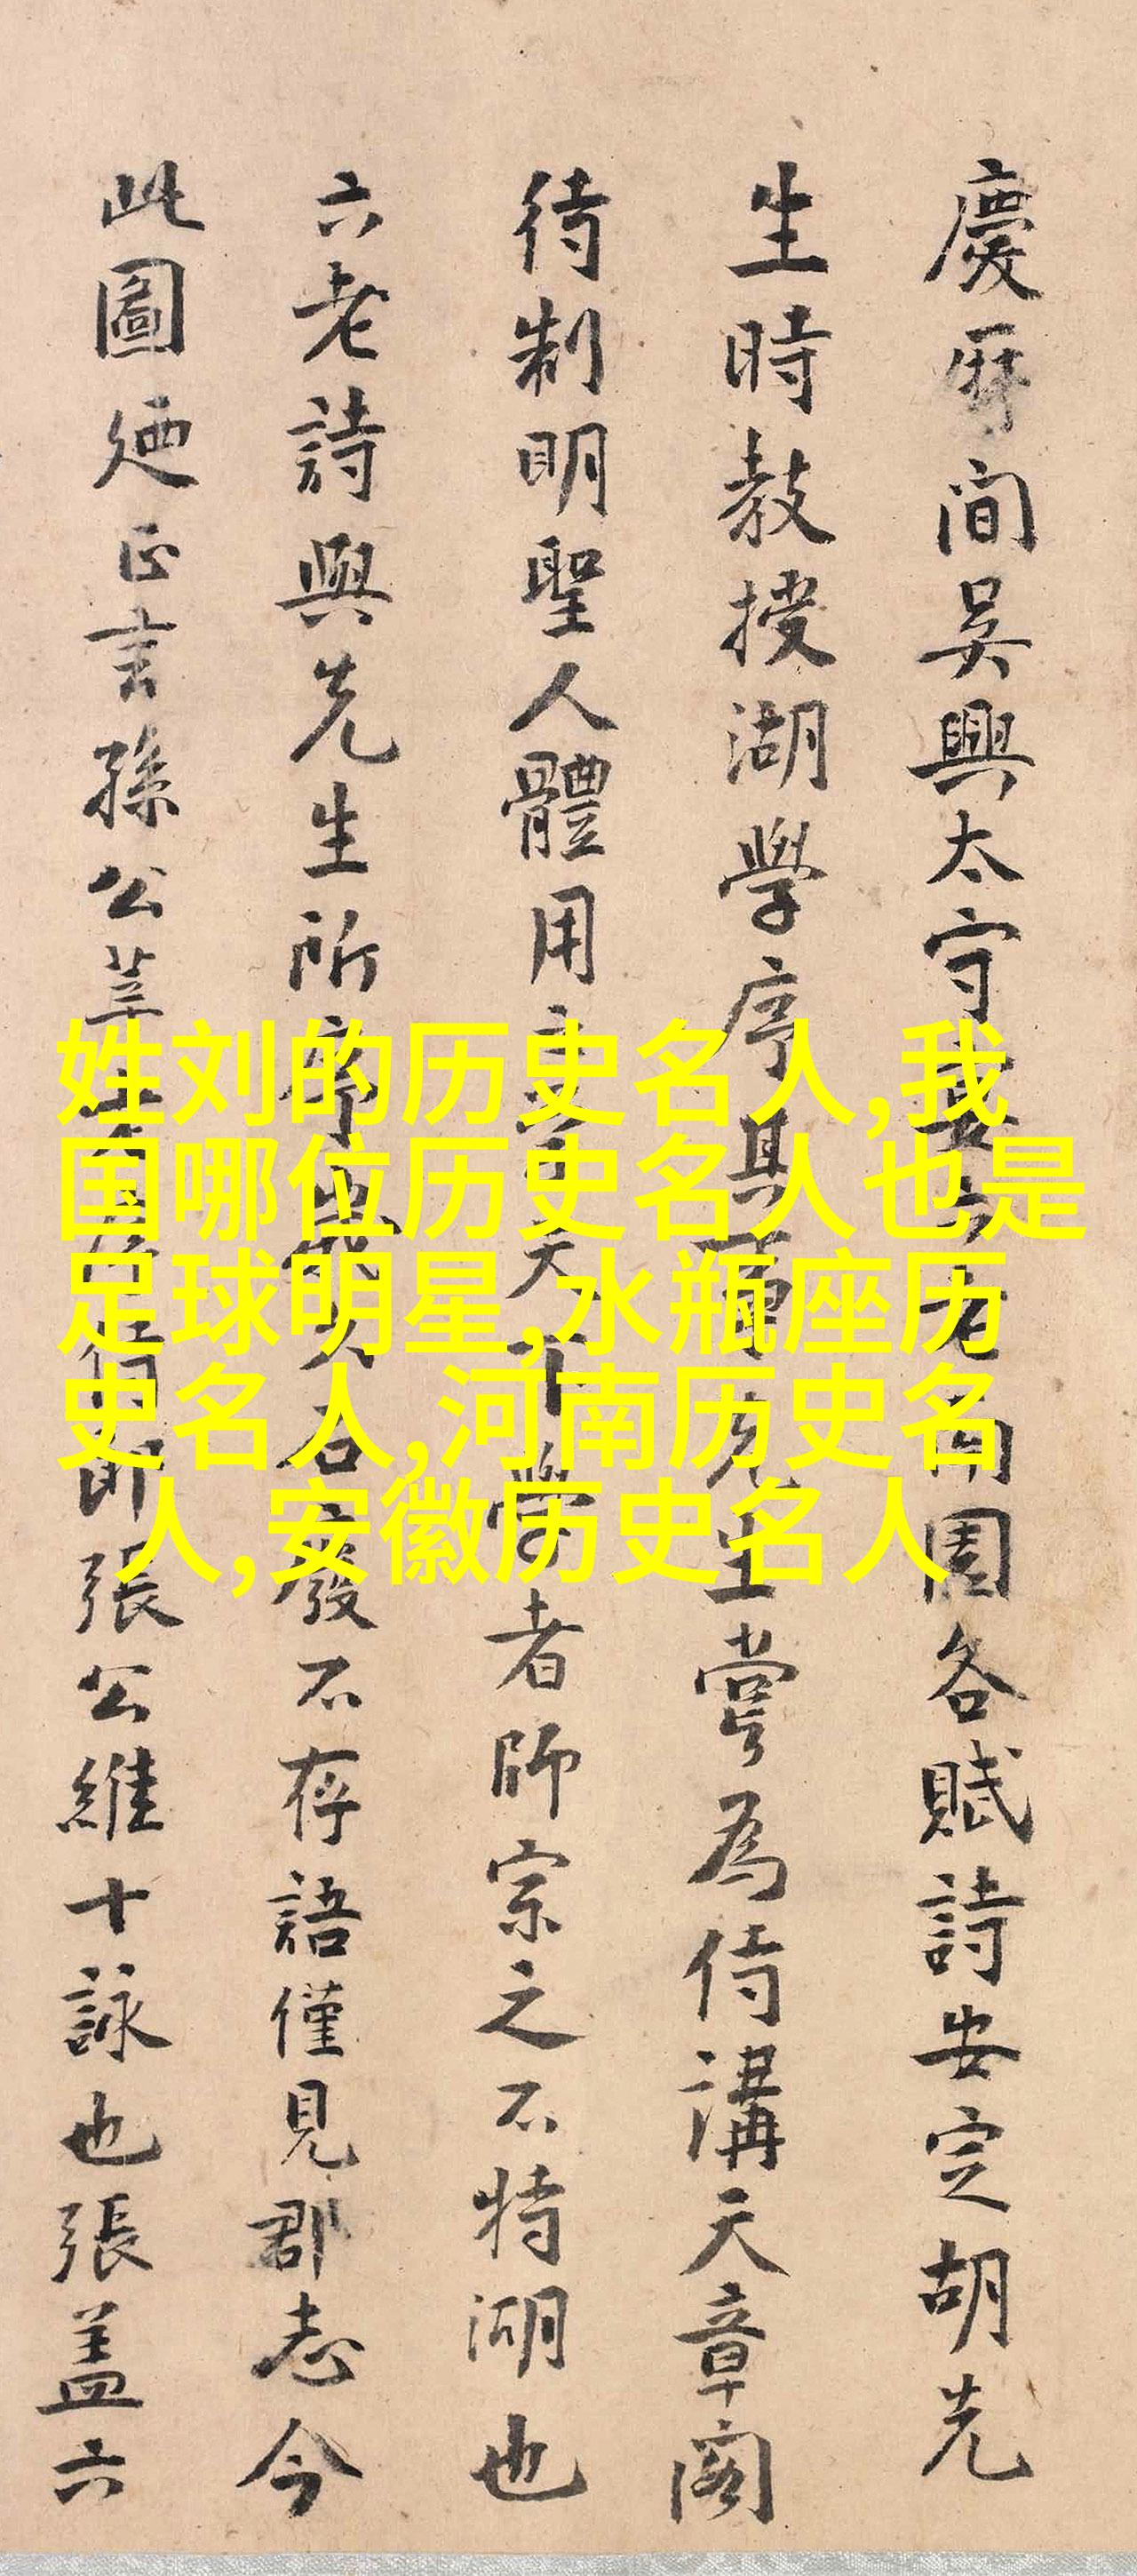 慶曆間吳興太守
老南園各賦詩安定胡先
生時教授湖學序其事
先生嘗為侍講天章閣
待制明聖人體用
天下學者師宗之不特湖也
六老詩與先生所序
石廢不存語僅見郡志今
此圖廼正言孫公莘
即張公維十詠也張蓋六
姓刘的历史名人,我
国哪位历史名人也是
足球明星,水瓶座历
史名人,河南历史名
人,安徽历史名人